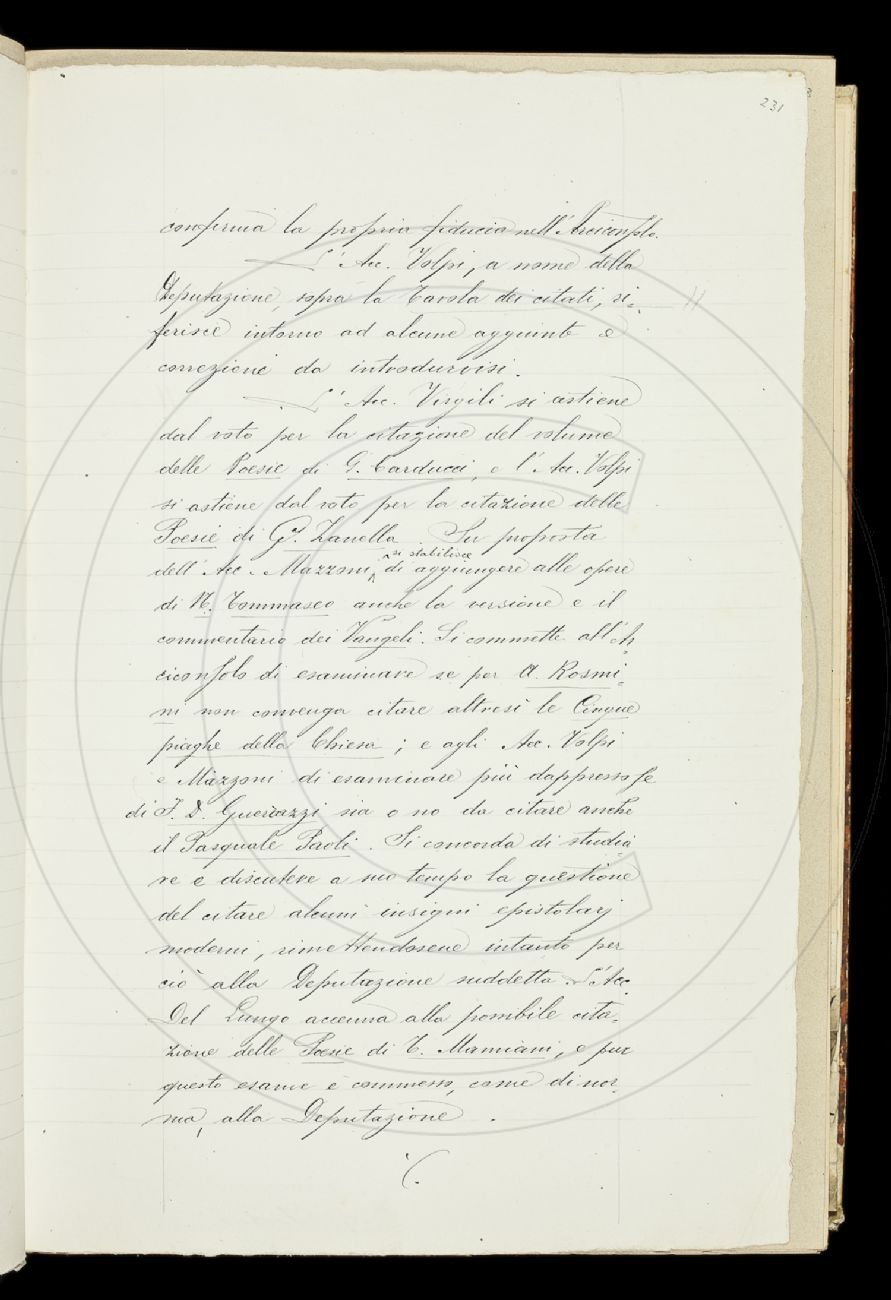 231
conferma la propria fiducia nell'Arciconsolo.
L'Acc. Volpi, a nome della
Deputazione, sopra la Tavola dei citati, ri=
ferisce intorno ad alcune aggiunte e
correzioni da introdurvisi.
L'Acc. Virgili si astiene
dal voto per la citazione del volume
delle Poesie di G. Carducci, e l'Acc. Volpi
si astiene dal voto per la citazione delle
Poesie di G. Zanella. Su proposta
si stabilisce
dell'Acc. Mazzoni, di aggiungere alle opere
di N. Tommaseo anche la versione e il
commentario dei Vangeli. Si commette all'Ar
ciconsolo di esaminare se per A. Rosmi=
ni non convenga citare altresì le Cinque
piaghe della Chiesa; e agli Acc. Volpi
e Mazzoni di esaminare più dappresso se
di F. D. Guerrazzi sia o no da citare anche
il Pasquale Paoli. Si concorda di studia
re e discutere a suo tempo la questione
del citare alcuni insigni epistolarj
moderni, rimettendosene intanto per
ciò alla Deputazione suddetta. L'Acc.
Del Lungo accenna alla possibile cita=
zione delle Poesie di T. Mamiani, e pur
questo esame è commesso, come di nor=
ma, alla Deputazione.